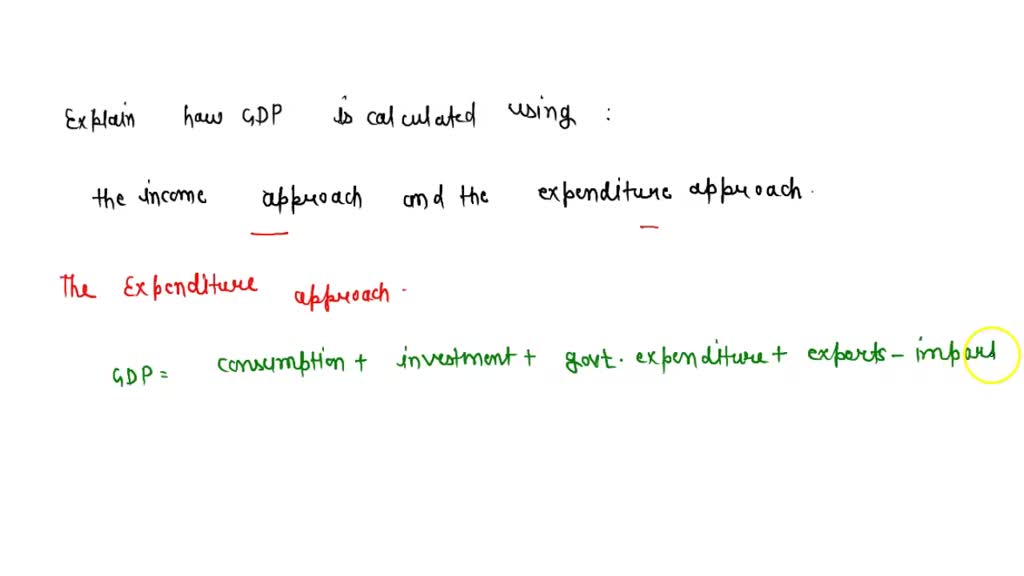 Explain how GDP is calculated using :
the income approach and the expenditure approach.
The Expenditure approach.
GDP = consumption + investment + govt. expenditure + exports - import